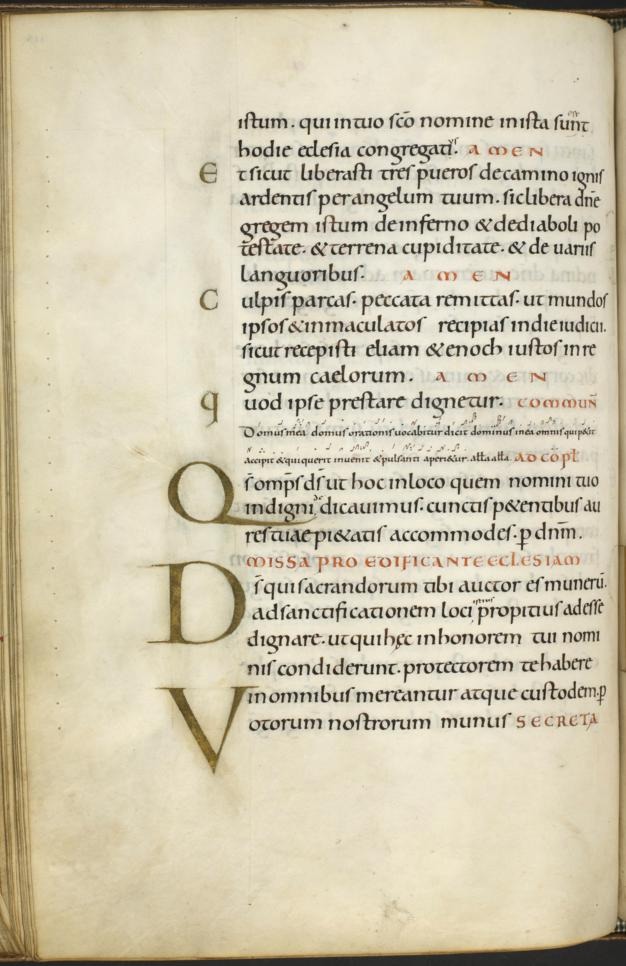 istum. qui in tuo sc̅o nomine in ista sunt
hodie eclesia congregati. AMEN
Et sicut liberasti tres pueros de camino ignis
ardentis per angelum tuum. sic libera dn̅e
gregem istum de inferno & de diaboli po
testate. & terrena cupiditate. & de variis
languoribus. AMEN
Culpis parcas. peccata remittas. ut mundos
ipsos & inmaculatos recipias in die iudicii.
sicut recepisti eliam & enoch iustos in re
gnum caelorum. AMEN
quod ipse prestare dignetur. COMMUN̅
Domus mea domus orationis vocabitur dicit dominus in ea omnis qui p&it
accipit & qui querit invenit & pulsanti aperi&ur. all̅a all̅a. AD CO̅PL̅
Qs̅ omp̅s ds̅ ut hoc in loco quem nomini tuo
indigni dicavimus. cunctis p&entibus au
res tuae pi&atis accommodes. p̅ dn̅m.
MISSA PRO EDIFICANTE ECLESIAM
Ds̅ qui sacrandorum tibi auctor es munerū.
ad sanctificationem loci istius propitius adesse
dignare. ut qui hęc in honorem tui nomi
nis condiderunt. protectorem te habere
in omnibus mereantur atque custodem. p̅
Votorum nostrorum munus SECRETA